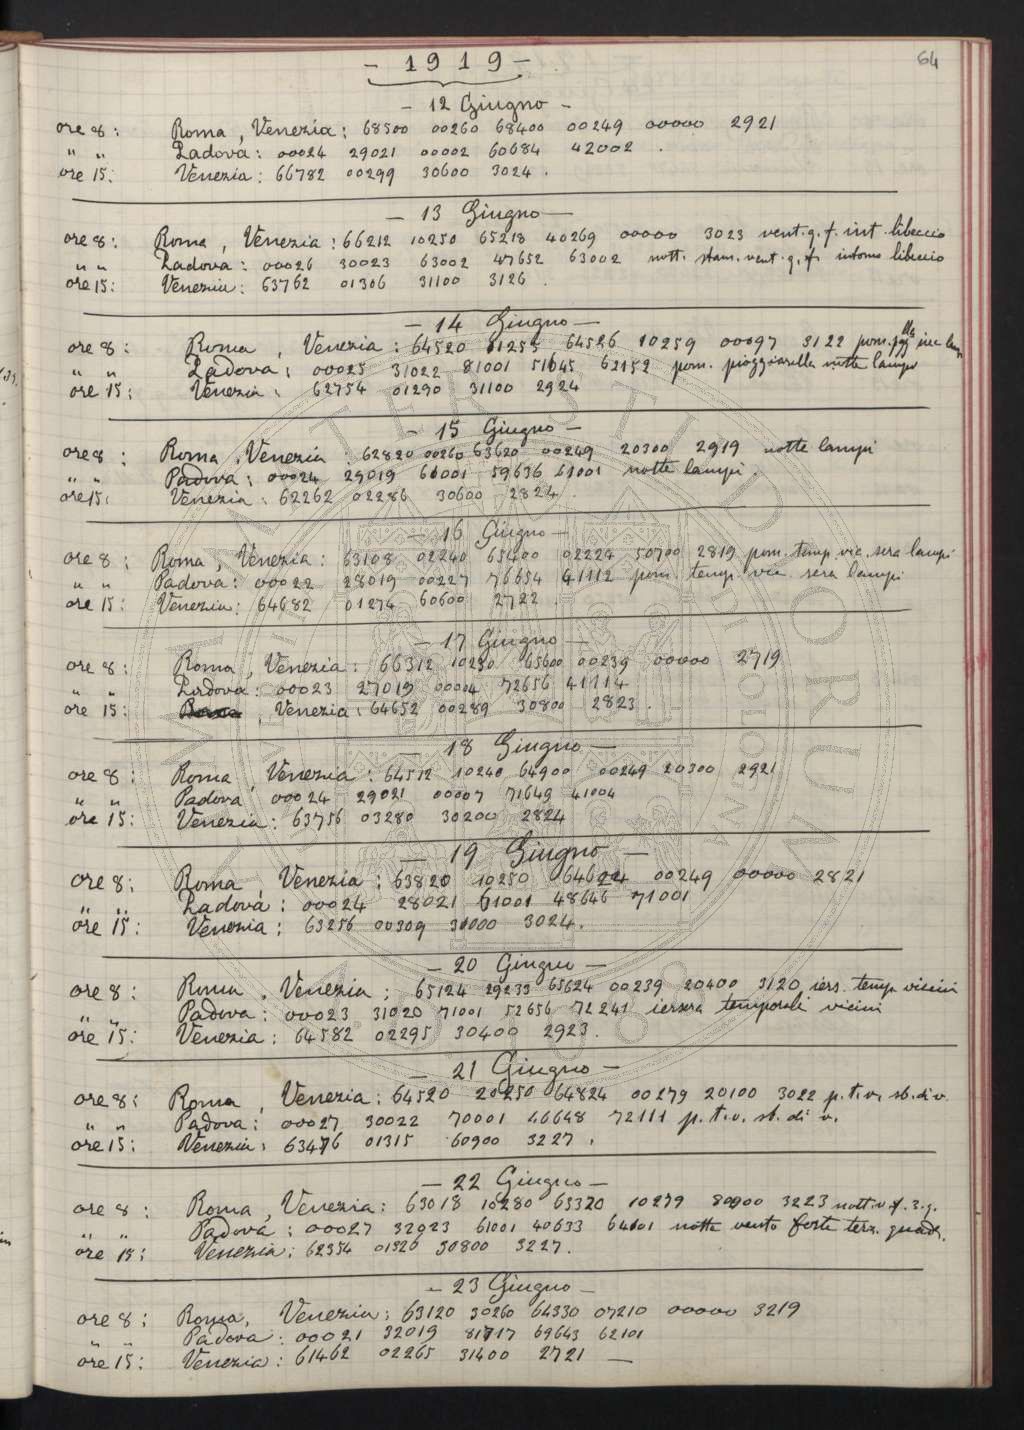 64
- 1919 -
- 12 Giugno -
ore 8: Roma, Venezia: 68500 00260 68400 00249 00000 2921
" " Padova: 00024 29021 00002 60684 42002.
ore 15: Venezia: 66782 00299 30600 3024.
- 13 Giugno -
ore 8: Roma, Venezia: 66212 10250 65218 40269 00000 3023 vent. q. f. int. libeccio
" " Padova: 00026 30023 63002 47652 63002 nott. stam. vent. q. f. intorno libeccio
ore 15: Venezia: 63762 01306 31100 3126.
- 14 Giugno -
ore 8: Roma, Venezia: 64520 11255 64526 10259 00097 3122 pom.
" " Padova: 00025 31022 81001 51645 62152 pom. pioggiarella notte lampi
ore 15: Venezia: 62754 01290 31100 2924
- 15 Giugno -
ore 8: Roma, Venezia: 62820 00260 63620 00249 20300 2919 notte lampi
" " Padova: 00024 29019 61001 59636 61001 notte lampi.
ore 15: Venezia: 62262 02286 30600 2824.
- 16 Giugno -
ore 8: Roma, Venezia: 63108 02240 65400 02224 50700 2819 pom. temp. vic. sera lampi
" " Padova: 00022 28019 00227 76654 41112 pom. temp. vic. sera lampi
ore 15: Venezia: 64682 01274 60600 2722.
- 17 Giugno -
ore 8: Roma, Venezia: 66312 10230 65600 00239 00000 2719
" " Padova: 00023 27019 00004 72656 41114
ore 15: , Venezia: 64652 00289 30800 2823.
- 18 Giugno -
ore 8: Roma, Venezia: 64512 10240 64900 00249 20300 2921
" " Padova 00024 29021 00007 71649 41004
ore 15: Venezia: 63756 03280 30200 2824
- 19 Giugno -
ore 8: Roma, Venezia: 63820 10250 64624 00249 00000 2821
" " Padova: 00024 28021 61001 48646 71001
ore 15: Venezia: 63256 00309 31000 3024.
- 20 Giugno -
ore 8: Roma, Venezia: 65124 29233 65624 00239 20400 3120 iers. temp. vicini
" " Padova: 00023 31020 71001 52656 72241 iersera temporali vicini
ore 15: Venezia: 64582 02295 30400 2923.
- 21 Giugno -
ore 8: Roma, Venezia: 64520 20250 64824 00279 20100 3022 p. t. v. sb. di v.
" " Padova: 00027 30022 70001 46648 72111 p. t. v. sb. di v.
ore 15: Venezia: 63476 01315 60900 3227.
- 22 Giugno -
ore 8: Roma, Venezia: 63018 10280 63320 10279 80900 3223 nott. v. f. 3. q.
" " Padova: 00027 32023 61001 40633 64001 notte vento forte terz. quadr.
ore 15: Venezia: 62354 01326 30800 3227.
- 23 Giugno -
ore 8: Roma, Venezia: 63120 30260 64330 07210 00000 3219
" " Padova: 00021 32019 81717 69643 62101
ore 15: Venezia: 61462 02265 31400 2721 -